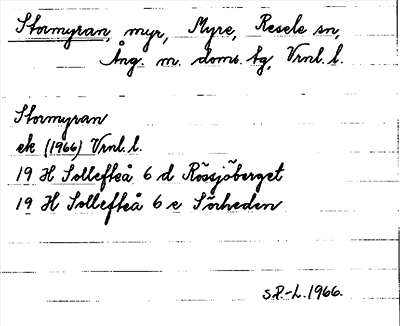 Stormyran, myr, Myre, Resele sn,
Ång. m. doms. tg, Vrnl. l.
Stormyran
ek (1966) Vrnl. l.
19 H Sollefteå 6 d Rössjöberget
19 H Sollefteå 6 e Sörheden
S.P.-L. 1966.